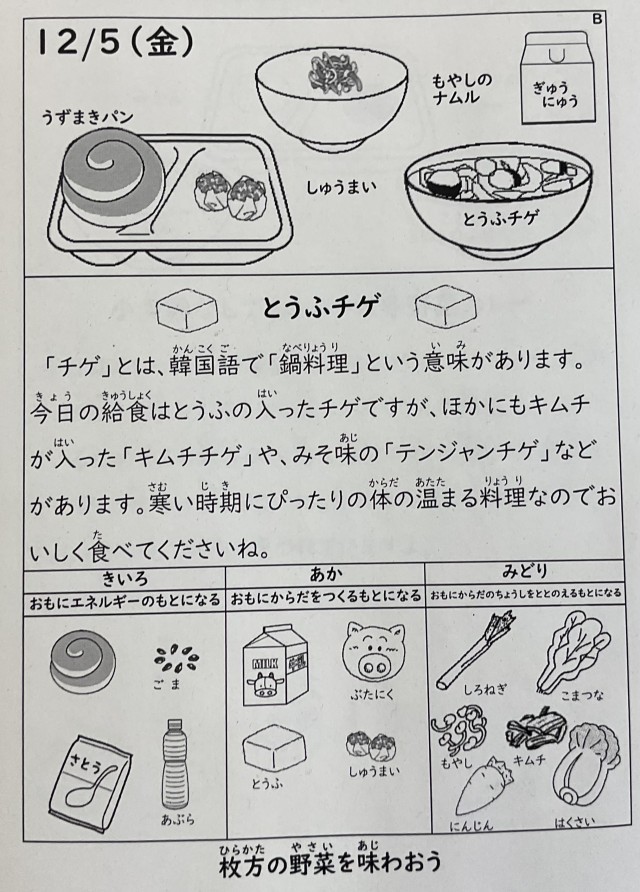 B
12/5（金）
もやしの
ナムル
ぎゅう
にゅう
うずまきパン
しゅうまい
とうふチゲ
とうふチゲ
「チゲ」とは、韓国語で「鍋料理」という意味があります。
今日の給食はとうふの入ったチゲですが、ほかにもキムチ
が入った「キムチチゲ」や、みそ味の「テンジャンチゲ」など
があります。寒い時期にぴったりの体の温まる料理なのでお
いしく食べてくださいね。
きいろ
あか
みどり
おもにエネルギーのもとになる
おもにからだをつくるもとになる
おもにからだのちょうしをととのえるもとになる
ごま
さとう
あぶら
MILK
ぶたにく
とうふ
しゅうまい
しろねぎ
こまつな
もやし
キムチ
にんじん
はくさい
枚方の野菜を味わおう